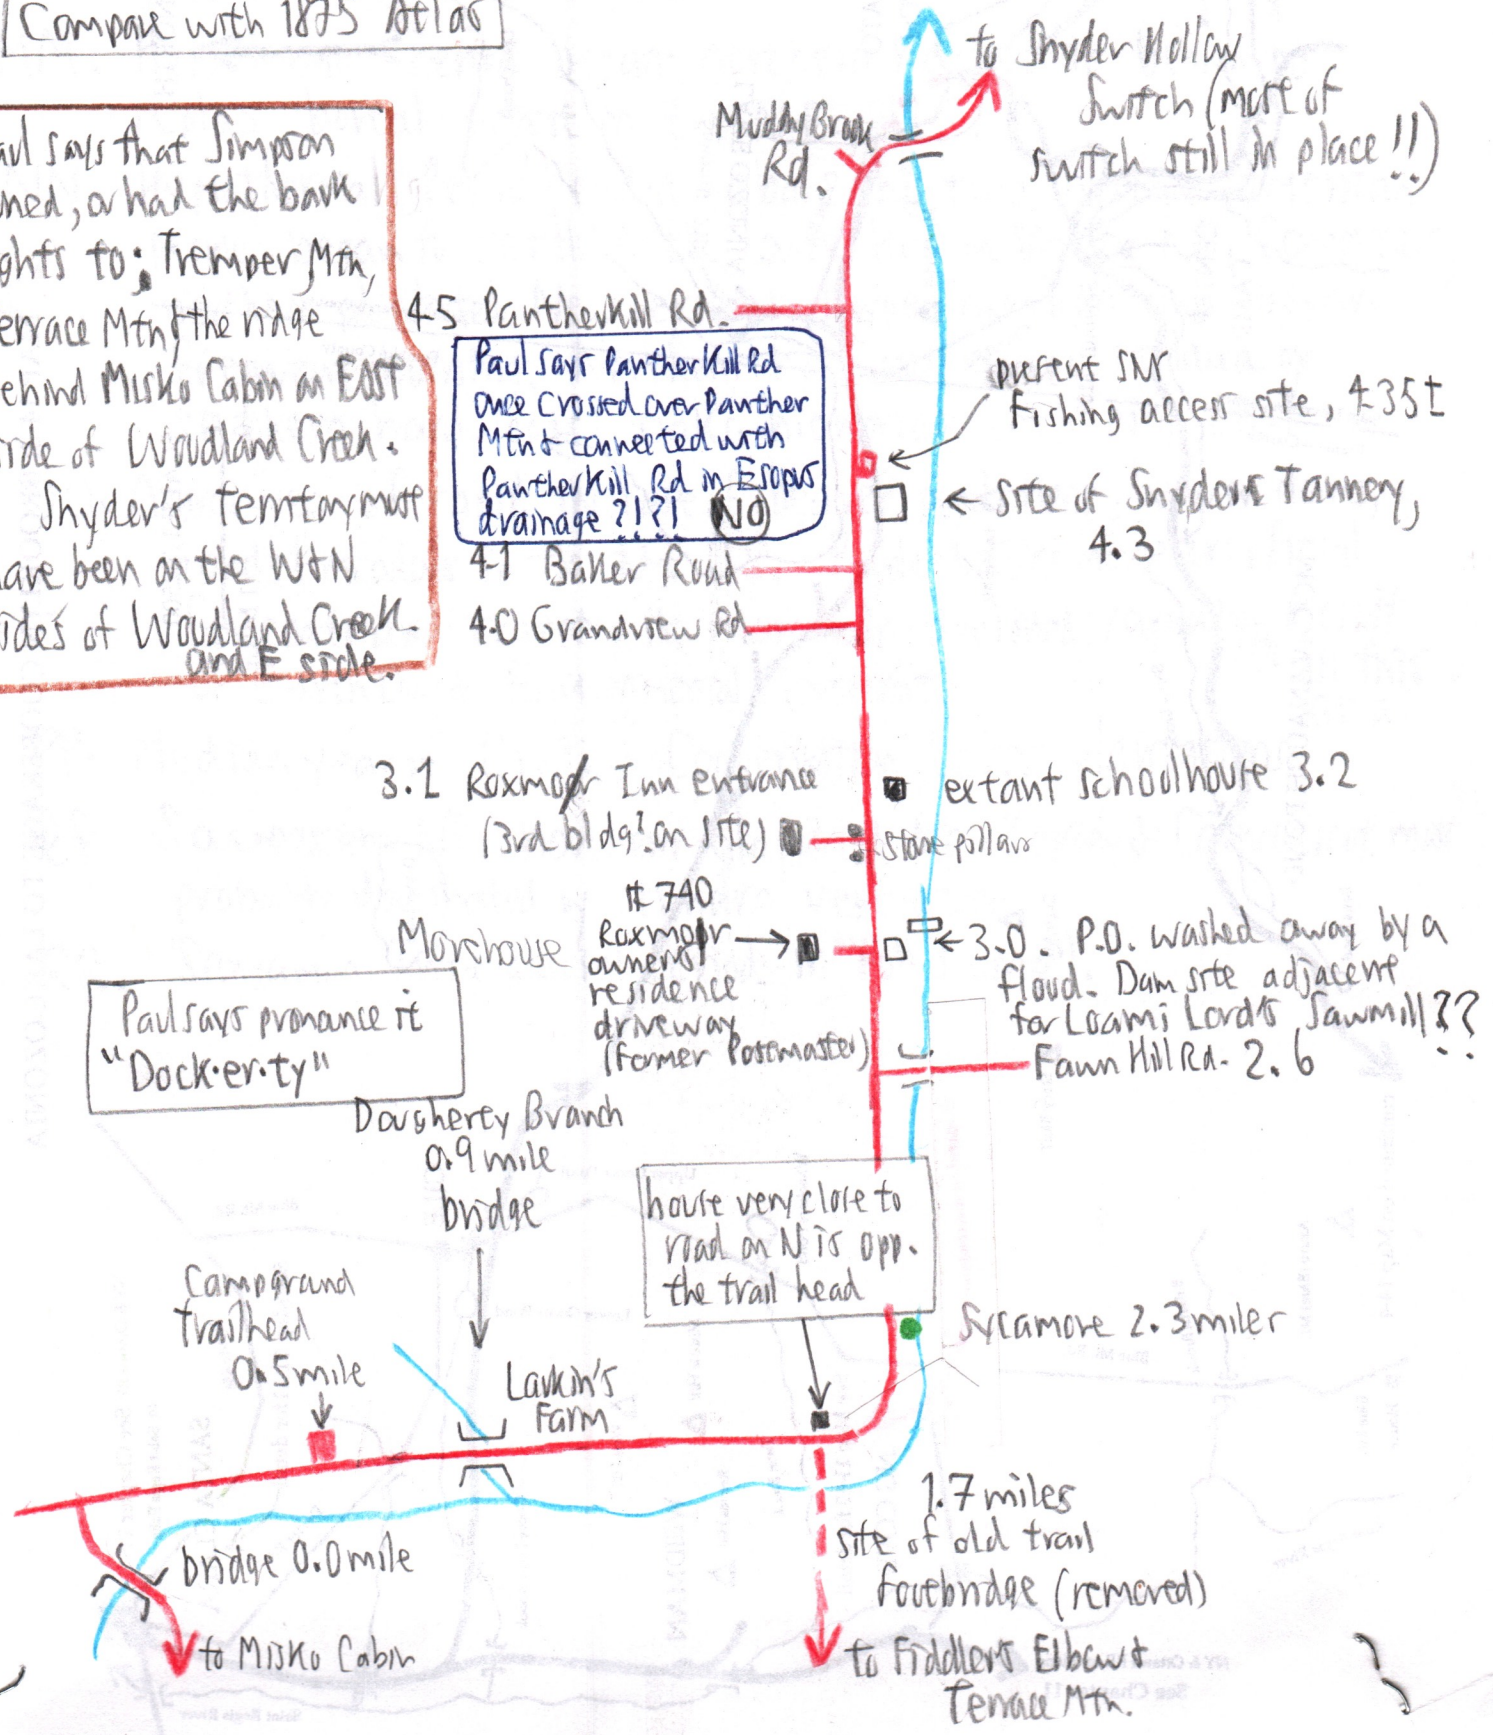 Compare with 1875 Atlas
to Snyder Hollow
Switch (most of
switch still in place!!)
Muddy Brook
Rd.
aul says that Simpson
ned, or had the bark
ghts to; Tremper Mtn,
errace Mtn & the ridge
ehind Misko Cabin on EAST
ide of Woodland Creek.
Snyder's territory must
ave been on the W & N
ides of Woodland Creek
and E side.
4.5 Pantherkill Rd.
Paul says Panther Kill Rd
once crossed over Panther
Mtn & connected with
Pantherkill Rd in Esopus
drainage ?!?! NO
present
fishing access site, 4.35±
site of Snyder's Tannery,
4.3
4.1 Baker Road
4.0 Grandview Rd
3.1 Roxmor Inn entrance
(3rd bldg? on site)
extant schoolhouse 3.2
stone pillars
# 740
Morehouse
Roxmor
owners
residence
driveway
(former Postmaster)
3.0. P.O. washed away by a
flood. Dam site adjacent
for Loami Lord's Sawmill??
Fawn Hill Rd. 2.6
Paul says pronounce it
"Dock·er·ty"
Dougherty Branch
0.9 mile
bridge
house very close to
road on N is opp.
the trail head
Campground
trailhead
0.5 mile
Larkin's
Farm
Sycamore 2.3 miles
1.7 miles
site of old trail
footbridge (removed)
bridge 0.0 mile
to Misko Cabin
to Fiddlers Elbow &
Terrace Mtn.